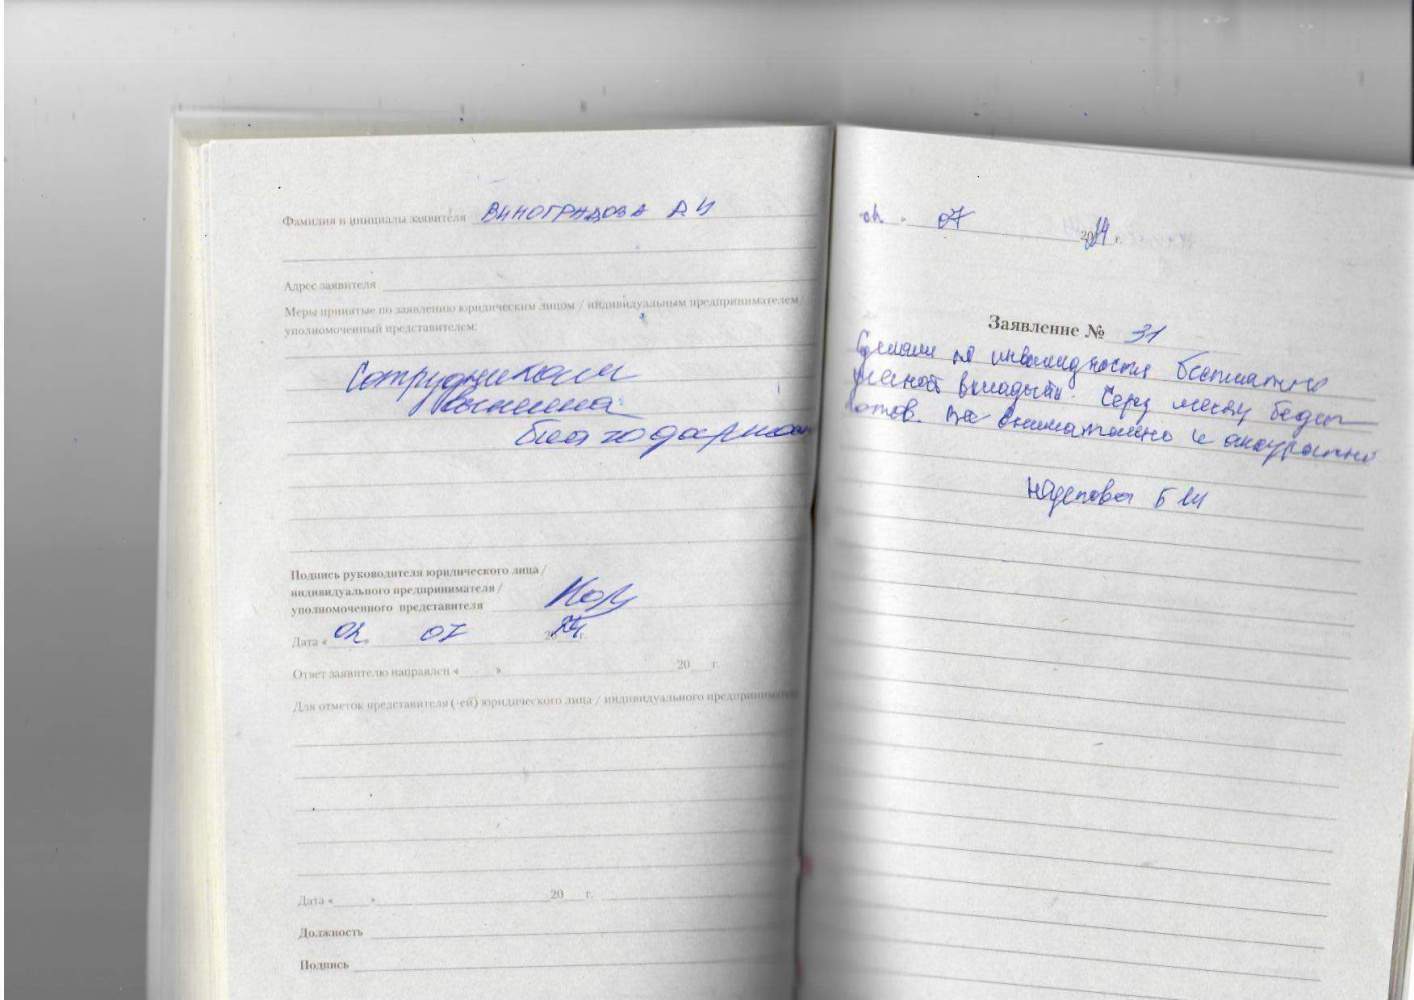 Фамилия и инициалы заявителя ВИНОГРАДОВА А И
Адрес заявителя
Меры принятые по заявлению юридическим лицом / индивидуальным предпринимателем /
уполномоченный представителем:
Сотрудникам
вынесена
благодарность
Подпись руководителя юридического лица /
индивидуального предпринимателя /
уполномоченного представителя
Дата «02» 07 2024 г.
Ответ заявителю направлен « » 20 г.
Для отметок представителя (-ей) юридического лица / индивидуального предпринимателя
Дата « » 20 г.
Должность
Подпись
02 . 07 2024 г.
Заявление № 31
Сделали по инвалидности бесплатно
ушной вкладыш. Через месяц будет
готов. Все внимательно и аккуратно